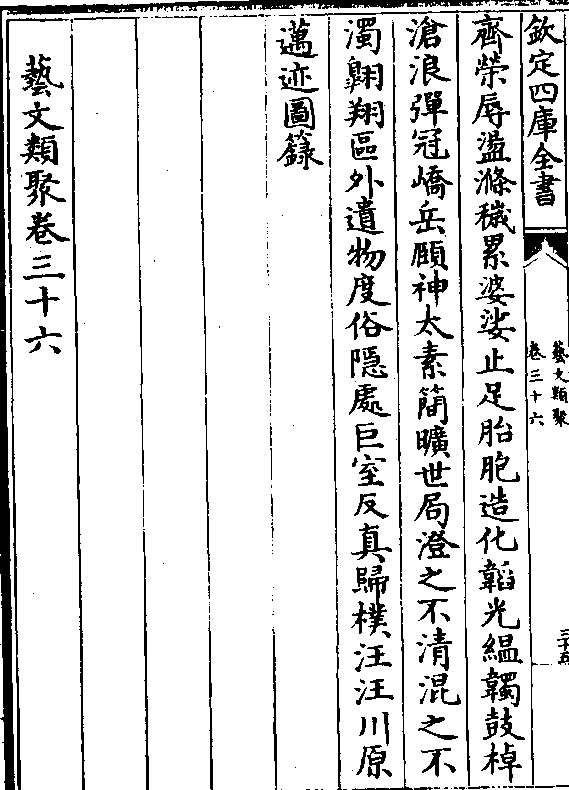 欽定四庫全書
藝文類聚
卷三十六
三十五
齊榮辱盪滌穢累婆娑止足胎胞造化韜光緼韣鼓棹
滄浪彈冠嶠岳頤神太素簡曠世局澄之不清混之不
濁翺翔區外遺物度俗隱處巨室反真歸樸汪汪川原
邁迹圖籙
藝文類聚卷三十六